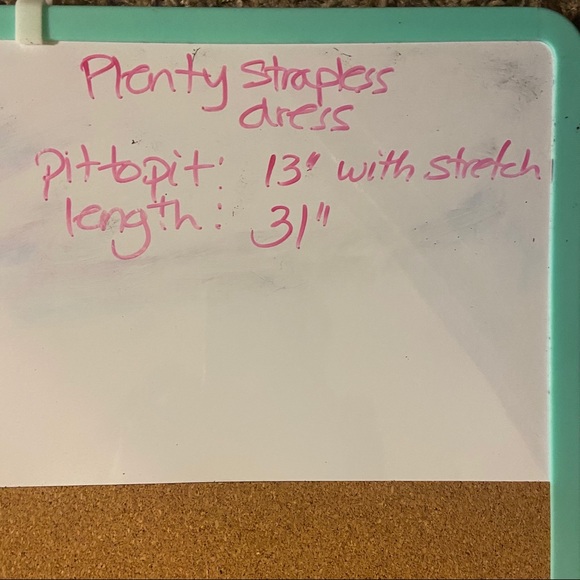 Plenty strapless
dress
pit to pit: 13" with stretch
length: 31"